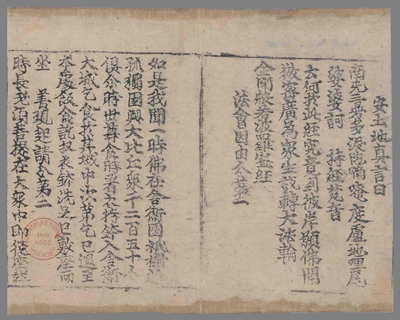 安土地真言曰
南无三滿多沒馱喃唵度盧地尾
娑婆訶　持經梵音
云何於此經究竟到彼岸願佛開
微密廣為衆生說轉大法輪
金剛般若波羅蜜經
法會因由分第一
如是我聞一時佛在舍衛國祇樹給
孤獨園與大比丘衆千二百五十人
俱尒時世尊食時着衣持鉢入舍衛
大城乞食於其城中次第乞已還至
本處飯食訖收衣鉢洗足已敷座而
坐　善現起請分第二
時長老須菩提在大衆中即從座起